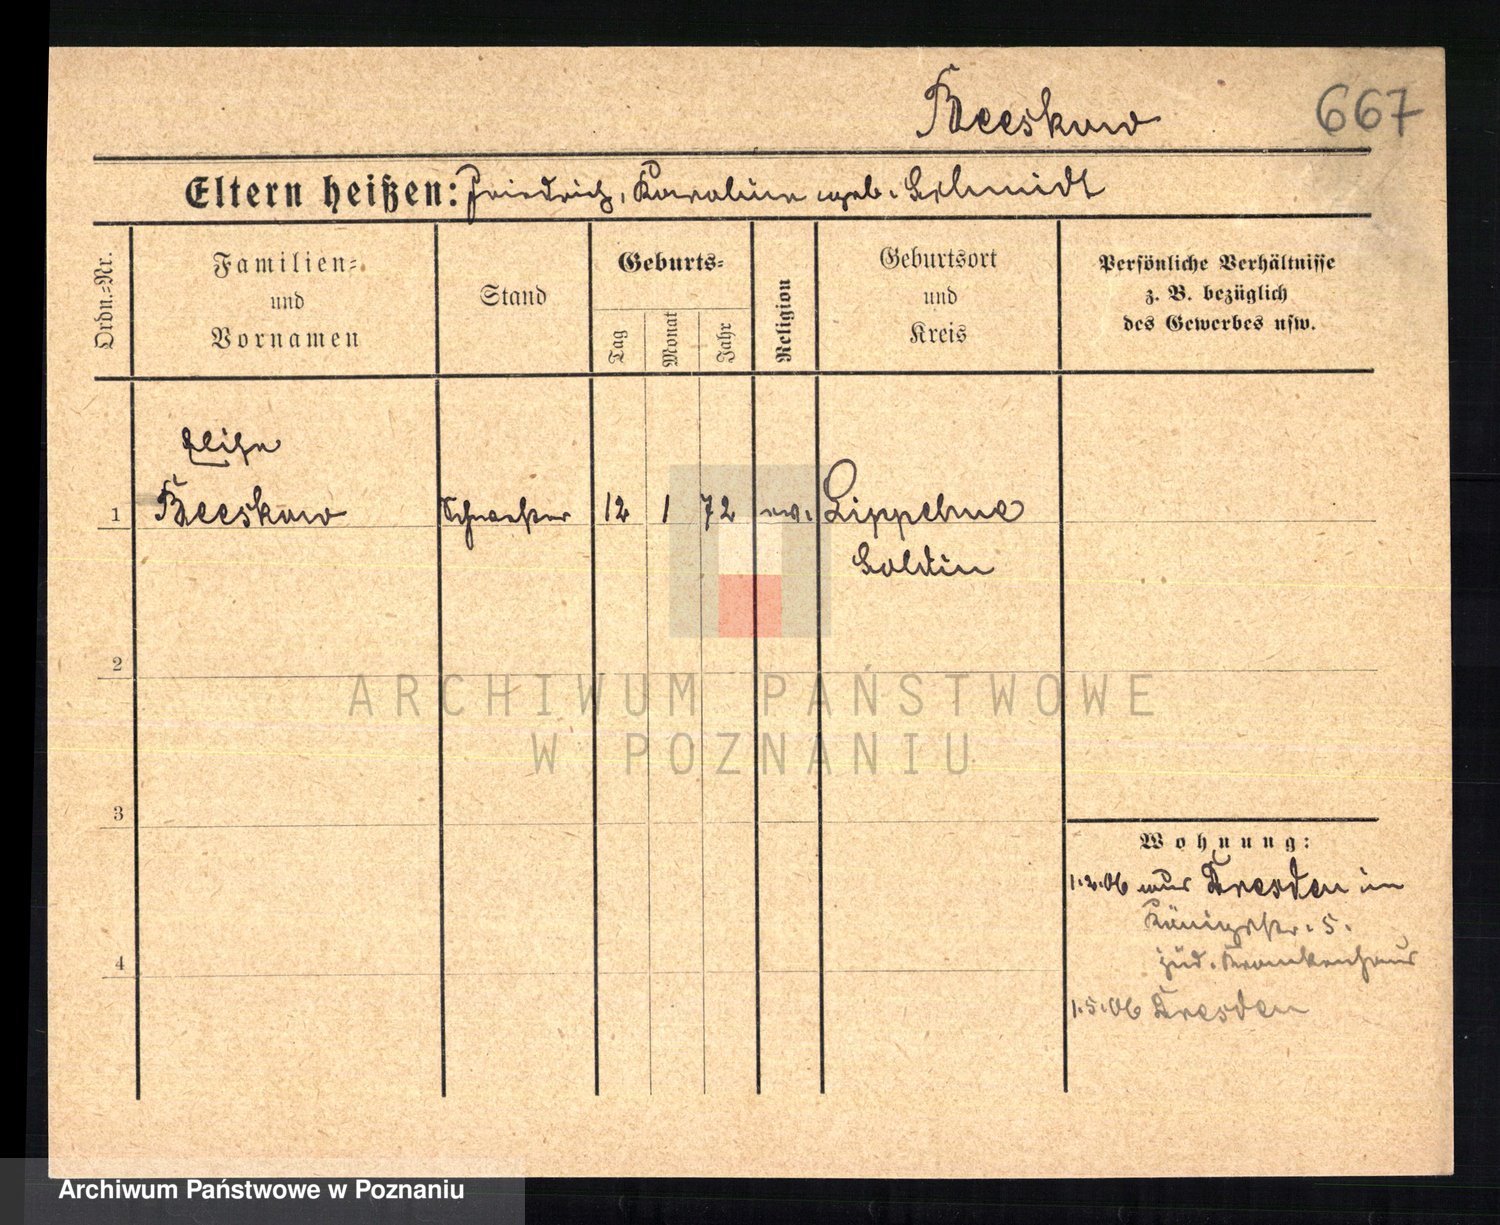 Beeskow
667
Eltern heißen: Friedrich, Karoline geb. Schmidt
Ordn.-Nr.
Familien- und Vornamen
Stand
Geburts-
Tag
Monat
Jahr
Religion
Geburtsort und Kreis
Persönliche Verhältnisse
z. B. bezüglich
des Gewerbes usw.
1
Elise
Beeskow
Schwester
12
1
72
ev.
Lippehne
Soldin
2
3
4
Wohnung:
1.2.06 aus Dresden in
Königstr. 5.
jüd. Krankenhaus
1.5.06 Dresden
ARCHIWUM PAŃSTWOWE
W POZNANIU
Archiwum Państwowe w Poznaniu